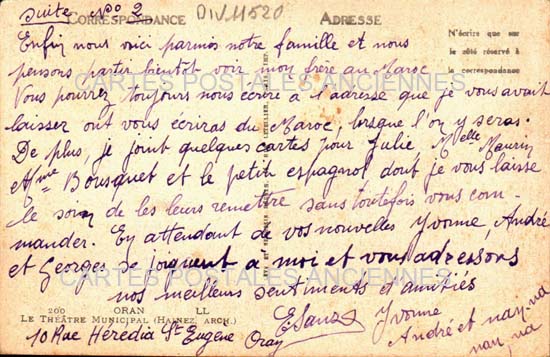 suite N° 2
CORRESPONDANCE
DIV11520
ADRESSE
N'écrire que sur
le côté réservé à
la correspondance
Enfin nous voici parmos notre famille et nous
pensons partir bientôt voir moy frère au Maroc
CARTES POSTALES ANCIENNES
Vous pourrez toujours nous écrire à l'adresse que je vous avait
laisser ont vous écriras du Maroc, lorsque l'on y seras.
De plus, je joint quelques cartes pour Julie, Melle Maurin
et Mme Bousquet et le petit espagnol dont je vous laisse
le soin de les leurs remettre sans toutefois vous com-
mander. En attendant de vos nouvelles Yvonne, André
et Georges se joignent à moi et vous adressons
CARTES POSTALES ANCIENNES
nos meilleurs sentiments et amitiés
200 ORAN LL
LE THÉÂTRE MUNICIPAL (HAINEZ, ARCH.)
E Sanz
Yvonne
André et nay-na
nay, na
10 Rue Hérédia St Eugène Oran